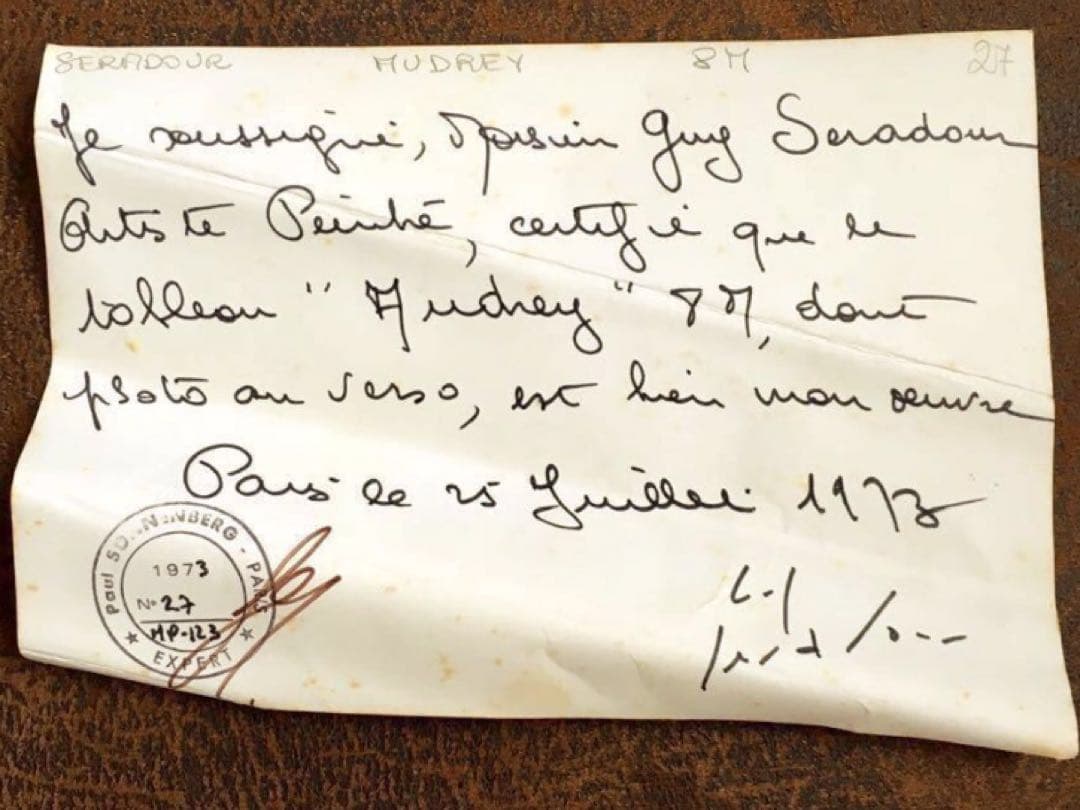 SERADOUR AUDREY 8M 27
Je soussigné, Monsieur Guy Seradour
Artiste Peintre, certifie que le
tableau "Audrey" 8M, dont
photo au verso, est bien mon oeuvre
Paris le 25 Juillet 1973
Paul SONNENBERG - PARIS
1973
N° 27
MP-123
★ EXPERT ★